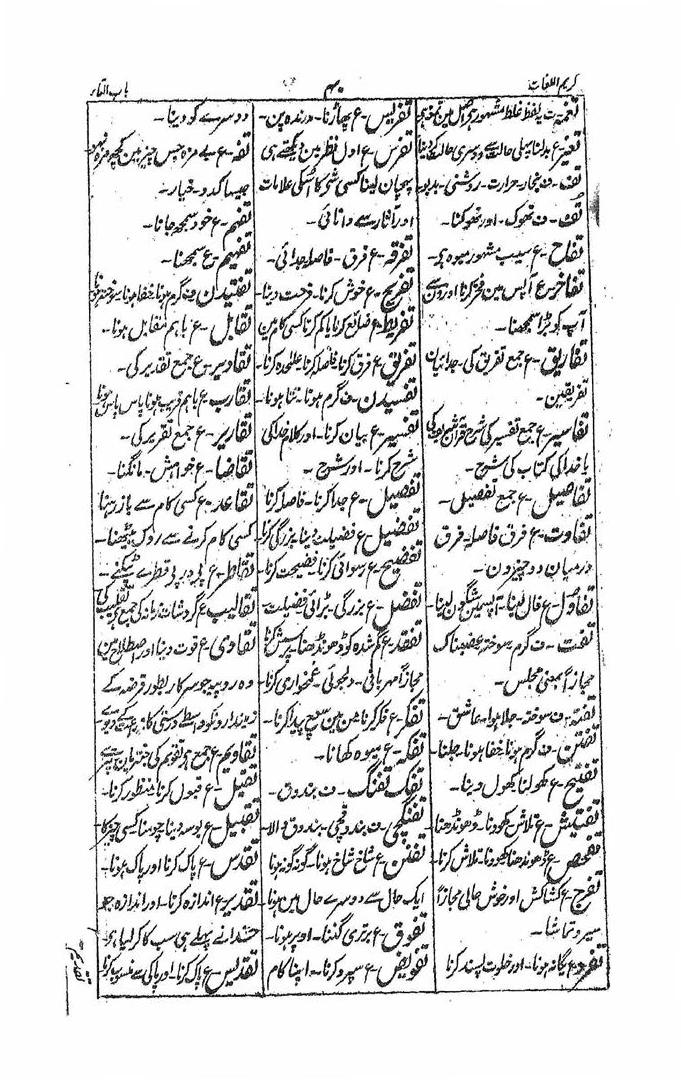 کریم اللغات
۴۰
باب التاء
تغمہ ت یہ لفظ غلط مشہور ہے اصل میں تمغہ ہے
تغیر ع بدلنا پہلی حالت سے دوسری حالت کے دینا
تف۔ ف بخار۔ حرارت۔ روشنی۔ بدبو
تف۔ ف تھوک۔ اور تھوکنا۔
تفاح۔ ع سیب مشہور میوہ ہے۔
تفاخر ع آپس میں فخر کرنا اور
آپ کو بڑا سمجھنا۔
تفاریق۔ ع جمع تفریق کی۔ جدائیاں
تفریقین۔
تفاسیر۔ ع جمع تفسیر کی شرح قرآن شریف کی
یا خدا کی کتاب کی شرح۔
تفاصیل۔ ع جمع تفصیل۔
تفاوت۔ ع فرق فاصلہ۔ فرق
درمیان دو چیزوں۔
تفاول۔ ع فال لینا۔ شگون لینا
تفت۔ ف گرم۔ سوختہ غضبناک
مجازاً بمعنی مجلس۔
تفتہ۔ ف سوختہ۔ جلا ہوا۔ عاشق۔
تفتن۔ ف گرم ہونا خفا ہونا۔ جلنا۔
تفتیح۔ ع کھولنا کھول دینا۔
تفتیش۔ ع تلاش کھودنا۔ ڈھونڈھنا
تفحص۔ ع ڈھونڈھنا کھودنا۔ تلاش کرنا۔
تفرج۔ ع کشاکش اور خوش حالی مجازاً
سیر و تماشا۔
تفرد۔ ع یگانہ ہونا۔ اور خلوت پسند کرنا
تفریس۔ ع پھاڑنا۔ درندہ پن۔
تفرس۔ ع اول نظر میں دیکھتے ہی
پہچان لینا کسی شے کا اسکی علامات
اور آثار سے دانائی۔
تفرقہ۔ ع فرق۔ فاصلہ جدائی۔
تفریح۔ ع خوش کرنا۔ فرحت دینا
تفریط۔ ع ضائع کرنا یا کم کرنا کسی کام میں
تفریق۔ ع فرق کرنا۔ فاصلہ کرنا علیحدہ کرنا۔
تفسیدن۔ ف گرم ہونا۔
تفسیر۔ ع بیان کرنا۔ اور کلام خدا کی
شرح کرنا۔ اور شرح۔
تفصیل۔ ع جدا کرنا۔ فاصلہ کرنا
تفضیل۔ ع فضیلت دینا۔ بزرگی کرنا
تفضیح۔ ع رسوائی کرنا۔ فضیحت کرنا
تفضل۔ ع بزرگی۔ بڑائی فضیلت
تفقد۔ ع گم شدہ کو ڈھونڈھنا۔ پرسش کرنا
مجازاً مہربانی۔ دلجوئی۔ غمخواری کرنا۔
تفکر۔ ع فکر کرنا من میں سوچ پیدا کرنا۔
تفکہ۔ ع میوہ کھانا۔
تفک تفنگ۔ ف بندوق۔
تفنگچی۔ ف بندوقچی۔ بندوق والا۔
تفنن۔ ع شاخ شاخ ہونا۔ گونہ گونہ ہونا
ایک حال سے دوسرے حال میں ہونا
تفوق۔ ع برتری گننا۔ اوپر ہونا۔
تفویض۔ ع سپرد کرنا۔ اپنا کام
دوسرے کو دینا۔
تفہ۔ ع بے مزہ جس چیز میں کچھ مزہ نہو
جیسا کدو۔ خیار۔
تفہم۔ ع خود سمجھ جانا۔
تفہیم۔ ع سمجھنا۔
تفتیدن۔ ف گرم ہونا خفا ہونا۔
تقابل۔ ع باہم مقابل ہونا۔
تقادیر۔ ع جمع تقدیر کی۔
تقارب۔ ع باہم قریب ہونا پاس پاس ہونا
تقاریر۔ ع جمع تقریر کی۔
تقاضا۔ ع خواہش۔ مانگنا۔
تقاعد۔ ع کسی کام سے باز رہنا
کسی کام کرنے سے رک بیٹھنا۔
تقاطر۔ ع پے در پے قطرے ٹپکنے۔
تقالیب ع گردشات زمانہ کی جمع ہے تقلیب کی
تقاوی۔ ع قوت دینا اور اصطلاح میں
وہ روپیہ جو سرکار بطور قرضہ کے
زمینداروں کو واسطے درستی کام کے دیوے
تقاویم۔ ع جمع ہے تقویم کی
تقبل۔ ع قبول کرنا منظور کرنا۔
تقبیل۔ ع بوسہ دینا چومنا کسی چیز کا
تقدس۔ ع پاک کرنا اور پاک ہونا۔
تقدیر۔ ع اندازہ کرنا۔ اور اندازہ جو
خدا نے پہلے ہی سب کا کر لیا ہے
تقدیس۔ ع پاک کرنا۔ اور پاکی سے منسوب کرنا